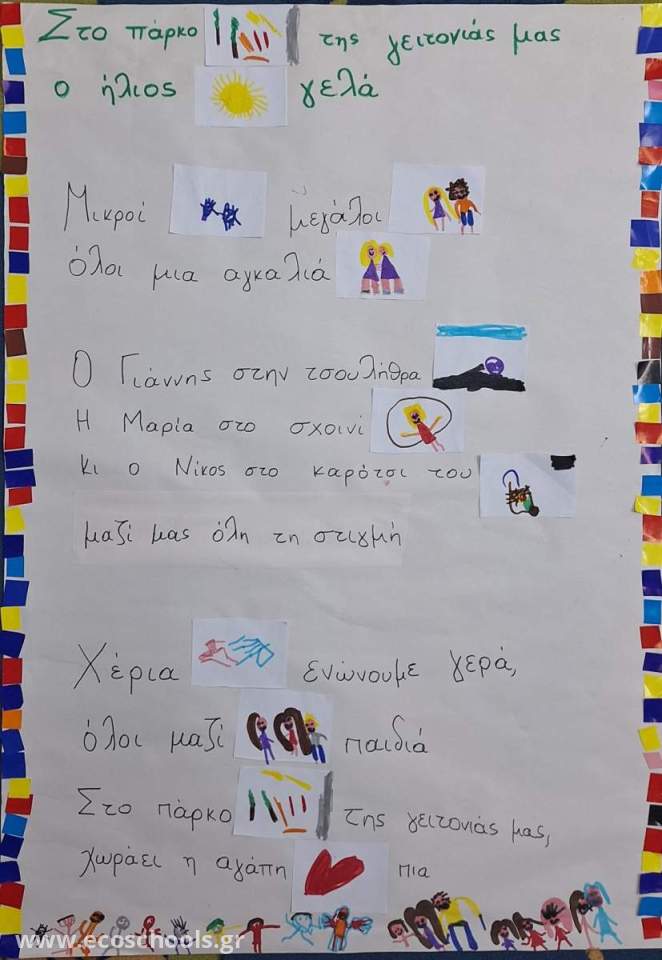 Στο πάρκο της γειτονιάς μας
ο ήλιος γελά
Μικροί μεγάλοι
όλοι μια αγκαλιά
Ο Γιάννης στην τσουλήθρα
Η Μαρία στο σχοινί
κι ο Νίκος στο καρότσι του
μαζί μας όλη τη στιγμή
Χέρια ενώνουμε γερά,
όλοι μαζί παιδιά
Στο πάρκο της γειτονιάς μας,
χωράει η αγάπη πια
www.ecoschools.gr